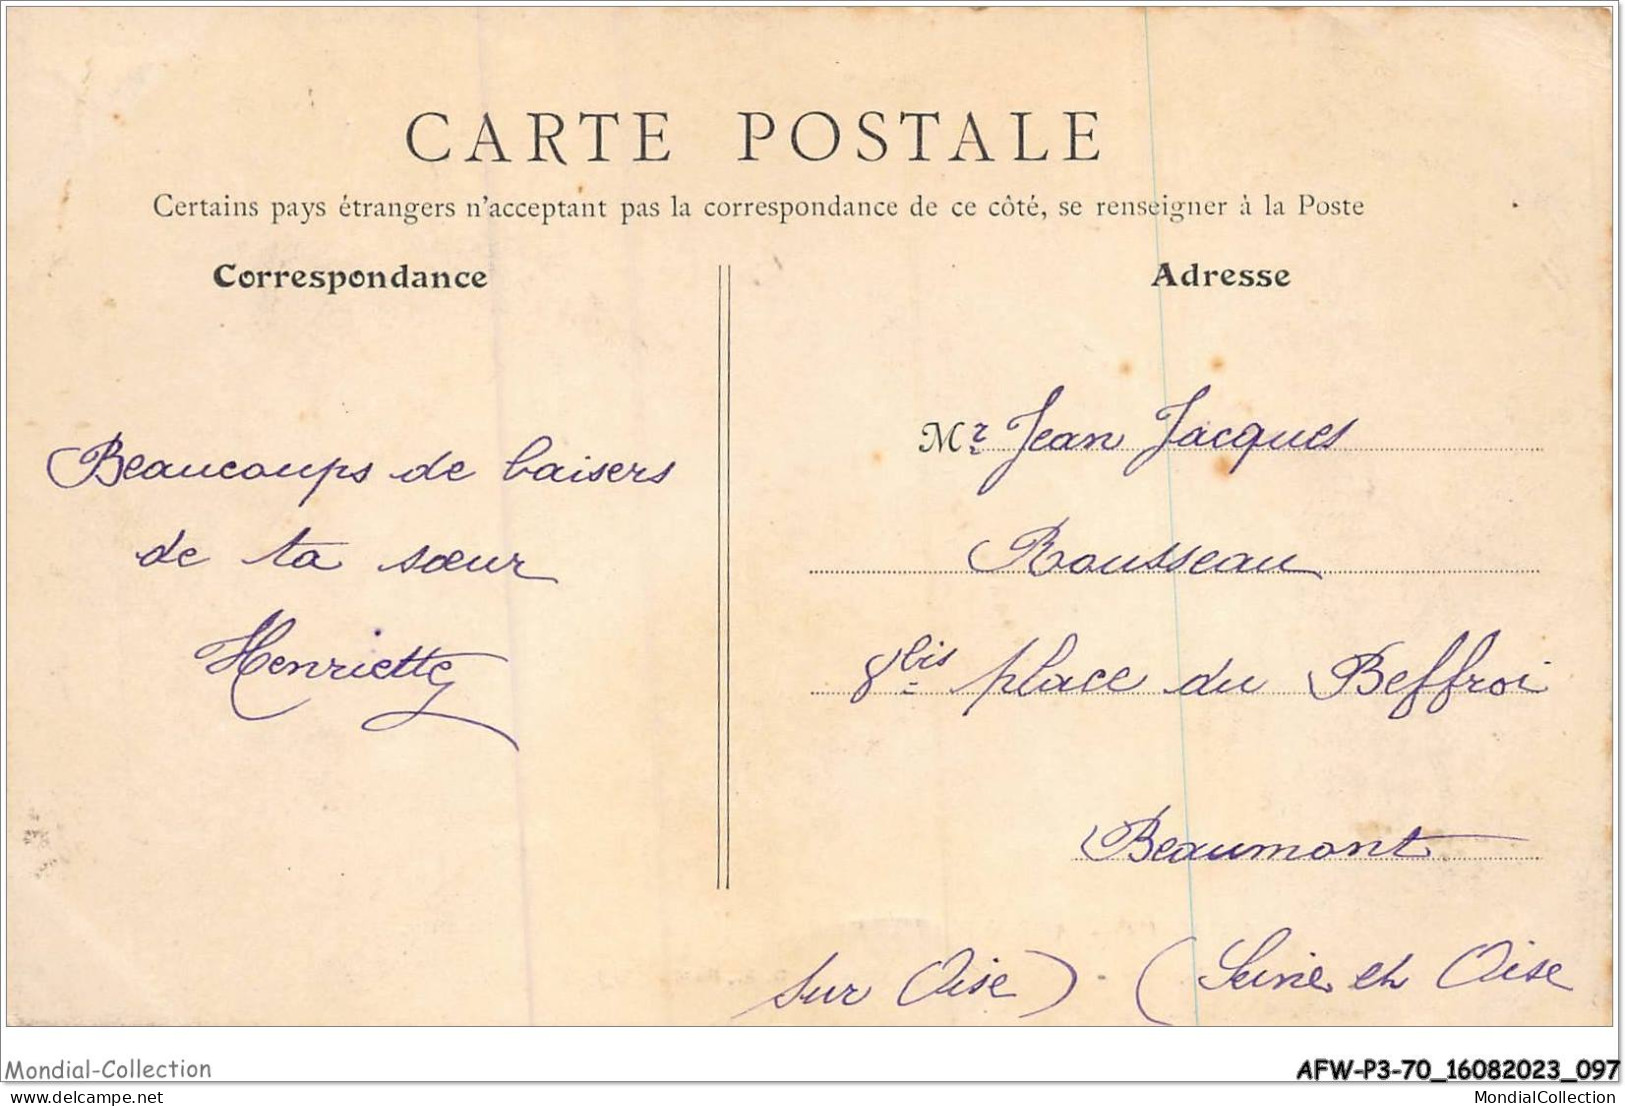 CARTE POSTALE
Certains pays étrangers n'acceptant pas la correspondance de ce côté, se renseigner à la Poste
Correspondance
Adresse
Beaucoups de baisers
de ta sœur
Henriette
Mr Jean Jacques
Rousseau
8bis place du Beffroi
Beaumont
sur Oise) (Seine et Oise
Mondial-Collection
AFW-P3-70_16082023_097
delcampe.net
MondialCollection